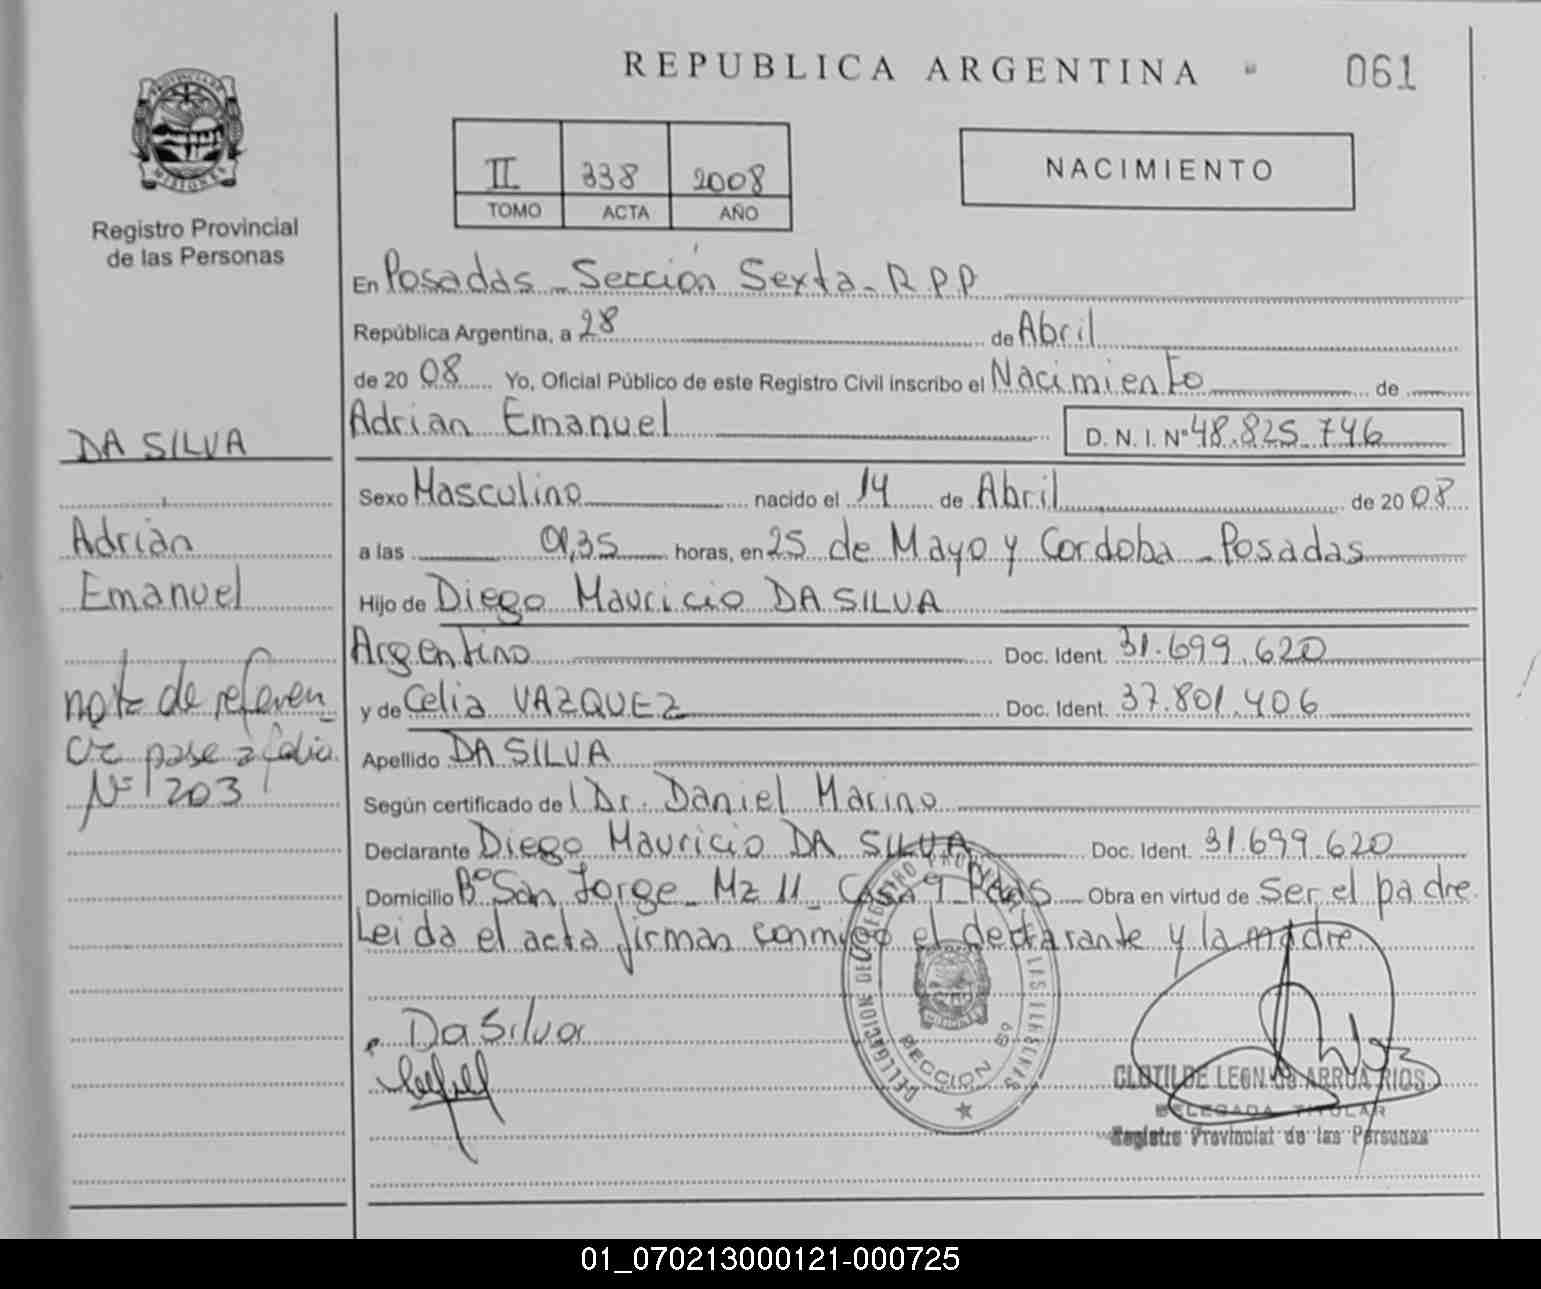 REPUBLICA ARGENTINA
061
PROVINCIA DE
MISIONES
Registro Provincial
de las Personas
II 338 2008
TOMO ACTA AÑO
NACIMIENTO
En Posadas - Sección Sexta - R P P
República Argentina, a 28 de Abril
de 20 08 Yo, Oficial Público de este Registro Civil inscribo el Nacimiento de
Adrian Emanuel D. N. I. Nº 48.825.746
Sexo Masculino nacido el 14 de Abril de 20 08
a las 01,35 horas, en 25 de Mayo y Cordoba - Posadas
Hijo de Diego Mauricio DA SILVA
Argentino Doc. Ident. 31.699.620
y de Celia VAZQUEZ Doc. Ident. 37.801.406
Apellido DA SILVA
Según certificado de l Dr. Daniel Marino
Declarante Diego Mauricio DA SILVA Doc. Ident. 31.699.620
Domicilio Bº San Jorge - Mz 11 - Casa 9 - Pdas Obra en virtud de Ser el padre
Leida el acta firman conmigo el declarante y la madre
DA SILVA
Adrián
Emanuel
nota de referen
cia pase a folio
Nº 203
Da Silva
DELEGACION DEL REGISTRO PROVINCIAL DE LAS PERSONAS
SECCION 6ª
CLOTILDE LEON de ARRUA RIOS
DELEGADA TITULAR
Registro Provincial de las Personas
01_070213000121-000725